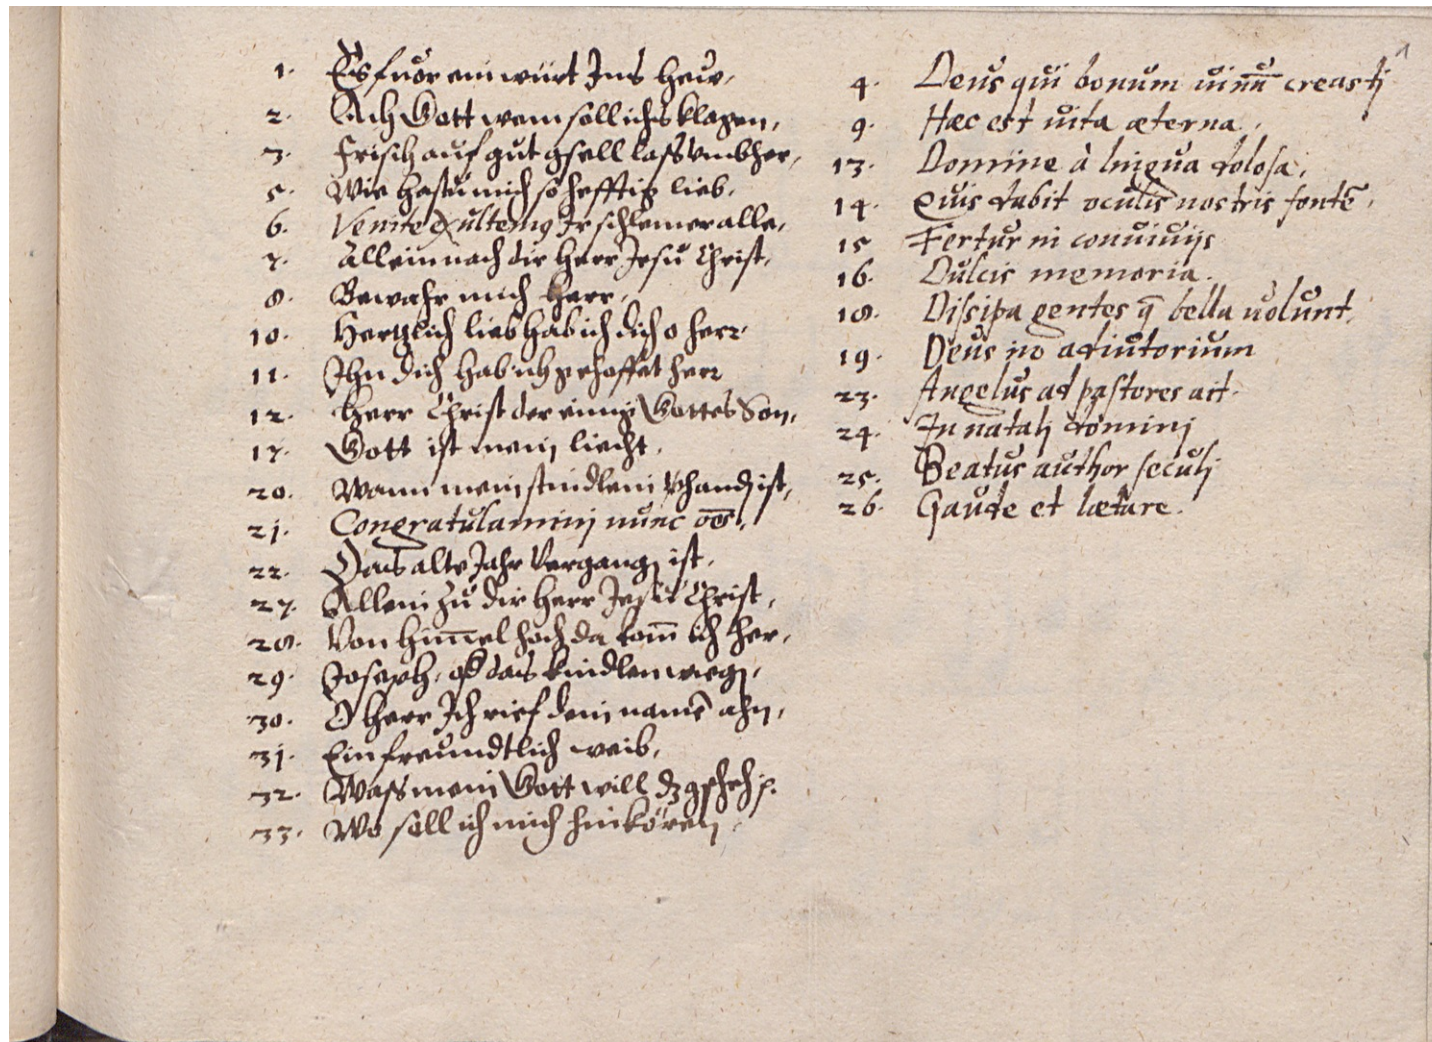 1. Es fuor ein würt Ins heuw,
2. Ach Gott wem soll ichs klagen,
3. Frisch auf gut gsell lass vmbher,
5. Wie hastu mich so hefftig lieb,
6. Venite exultemus Ir schlemer alle,
7. Allein nach dir Herr Jesu Christ,
8. Bewahr mich Herr,
10. Hertzlich lieb hab ich dich o herr
11. Ihn dich hab ich gehoffet herr
12. Herr Christ der einig Gottes Son,
17. Gott ist mein liecht,
20. Wann mein stindlein vhanden ist,
21. Congratulaminj nunc oēs,
22. Das alte Jahr vergangen ist,
27. Allein zu dir Herr Jesu Christ,
28. Von himel hoch da kom̄ ich her,
29. Joseph, das kindlen wiegen,
30. O Herr Ich rief dein namē ahn,
31. Ein freundtlich weib,
32. Wass mein Gott will dz gscheh
33. Wo soll ich mich hinkören,
1
4. Deus qui bonum uinū creastj
9. Hæc est uita æterna,
13. Domine à lingua dolosa,
14. Quis dabit oculis nostris fontē,
15 Fertur in conuiuijs
16. Dulcis memoria.
18. Dissipa gentes q̄ bella uolunt,
19. Deus in adiutorium
23. Angelus ad pastores ait.
24. In natalj dominj
25. Beatus author seculj
26. Gaude et lætare.